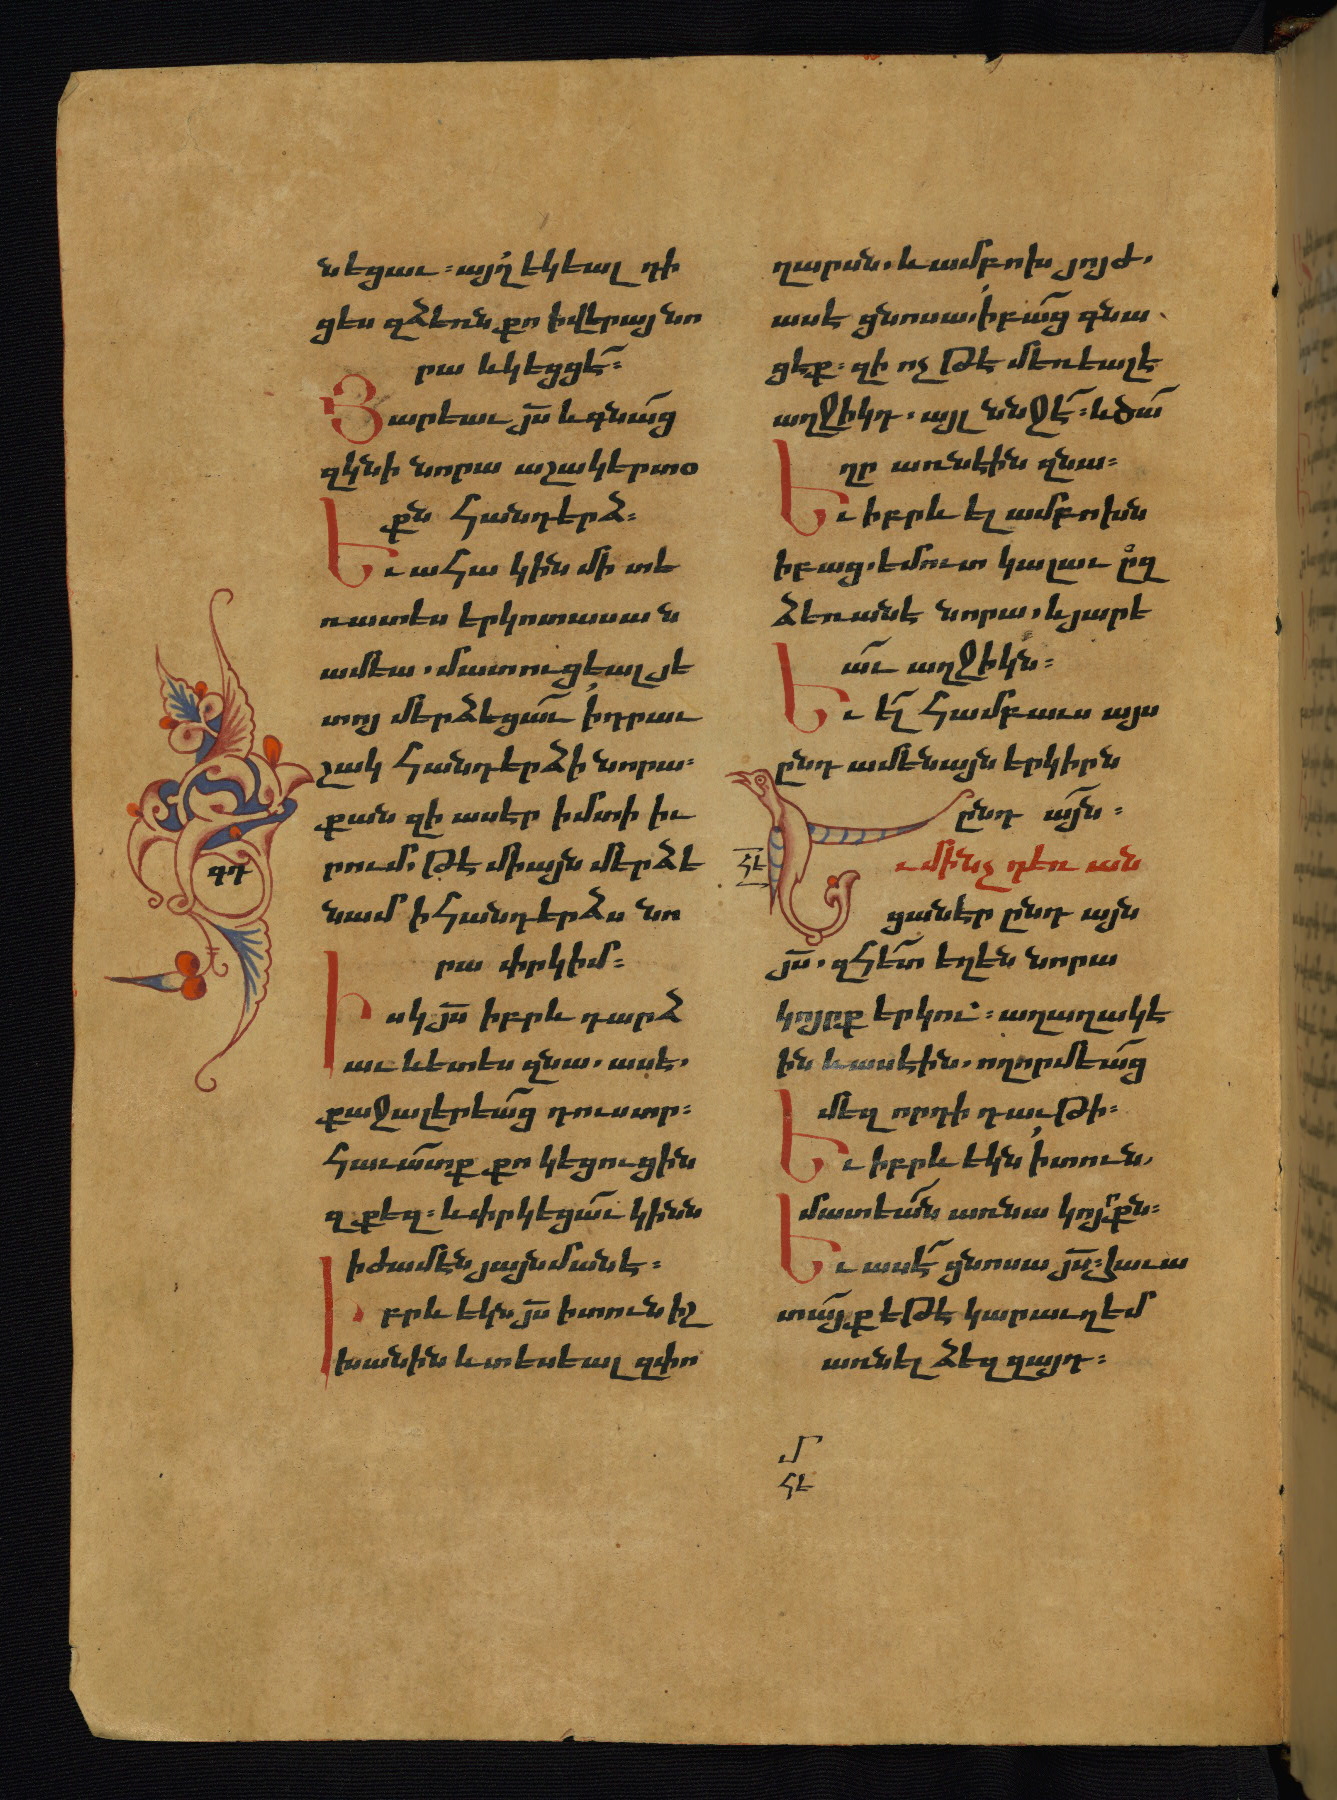 նեցաւ։ այղ եկեալ դի
ցես զձեռն քո ի վերայ նո
րա և կեցցէ՛։
Յարեաւ յս և գնաց
զկնի նորա աշակերտօ
քն հանդերձ։
Եւ ահա կին մի տե
ռատես երկոտասան
ամեա. մատուցեալ յե
տոյ մերձեցաւ ի դրաւ
շակ հանդերձի նորա։
քան զի ասէր ի մտի իւ
րում. թէ միայն մերձե
նամ ի հանդերձս նո
րա փրկիմ։
Իսկ յս իբրև դարձ
աւ ևետես զնա. ասէ.
քաջալերեաց դուստր։
հաւատք քո կեցուցին
զքեզ։ և փրկեցաւ կինն
ի ժամէն յայնմանէ։
Իբրև եկն յս ի տուն իշ
խանին և տեսեալ զփո
գդ
ղարսն. և ամբոխ յոյժ.
ասէ ցնոսա. ի բաց գնա
ցէք։ զի ոչ թէ մեռեալ է
աղջիկդ. այլ ննջէ՛։ և ծա
ղր առնէին զնա։
Եւ իբրև ել ամբոխն
ի բաց. եմուտ կալաւ ըզ
ձեռանէ նորա. և յարե
աւ աղջիկն։
Եւ ել համբաւս այս
ընդ ամենայն երկիրն
ընդ այն։
Եւ մինչ դեռ ան
ցանէր ընդ այն
յս. զհետ եղեն նորա
կոյրք երկու։ աղաղակէ
ին և ասէին. ողորմեաց
մեզ որդի դաւթի։
Եւ իբրև եկն ի տուն,
մատեան առնա կոյրքն։
Եւ ասէ ցնոսա յս։ հաւա
տայք եթէ կարաւղ եմ
առնել ձեզ զայդ։
ՀԵ
Մ
ՀԵ